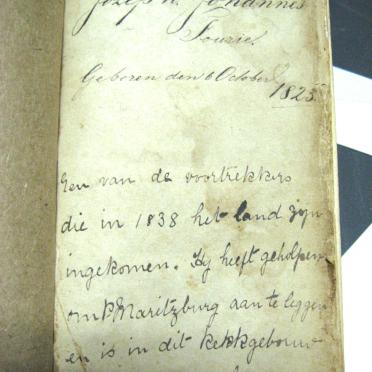 Johannes
Fourie.
Geboren den 6 October
1825.
Een van de voortrekkers
die in 1838 het land zijn
ingekomen. Hij heeft geholpen
om P. Maritzburg aan te leggen
en is in dit kerkgebouw